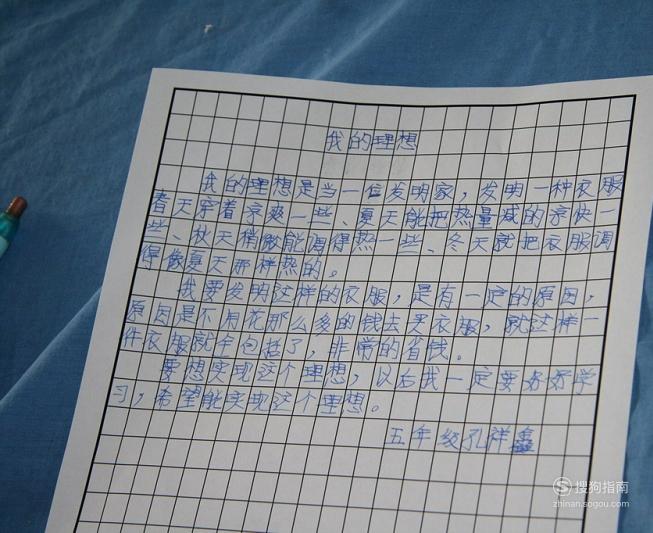 我的理想
我的理想是当一位发明家，发明一种衣服
春天穿着凉爽一些、夏天能把热量减的凉快一
些、秋天稍微能调得热一些、冬天就把衣服调
得像夏天那样热的。
我要发明这样的衣服，是有一定的原因，
原因是不用花那么多的钱去买衣服，就这样一
件衣服就全包括了，非常的省钱。
要想实现这个理想，以后我一定要好好学
习，希望能实现这个理想。
五年级孔祥鑫
搜狗指南
zhinan.sogou.com